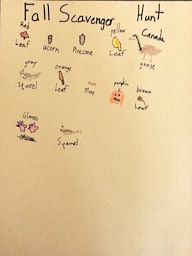 Fall Scavenger Hunt
Red Leaf
acorn
Pinecone
yellow Leaf
Canada goose
gray Squirrel
orange Leaf
pumpkin
brown Leaf
Gloves
Squirrel